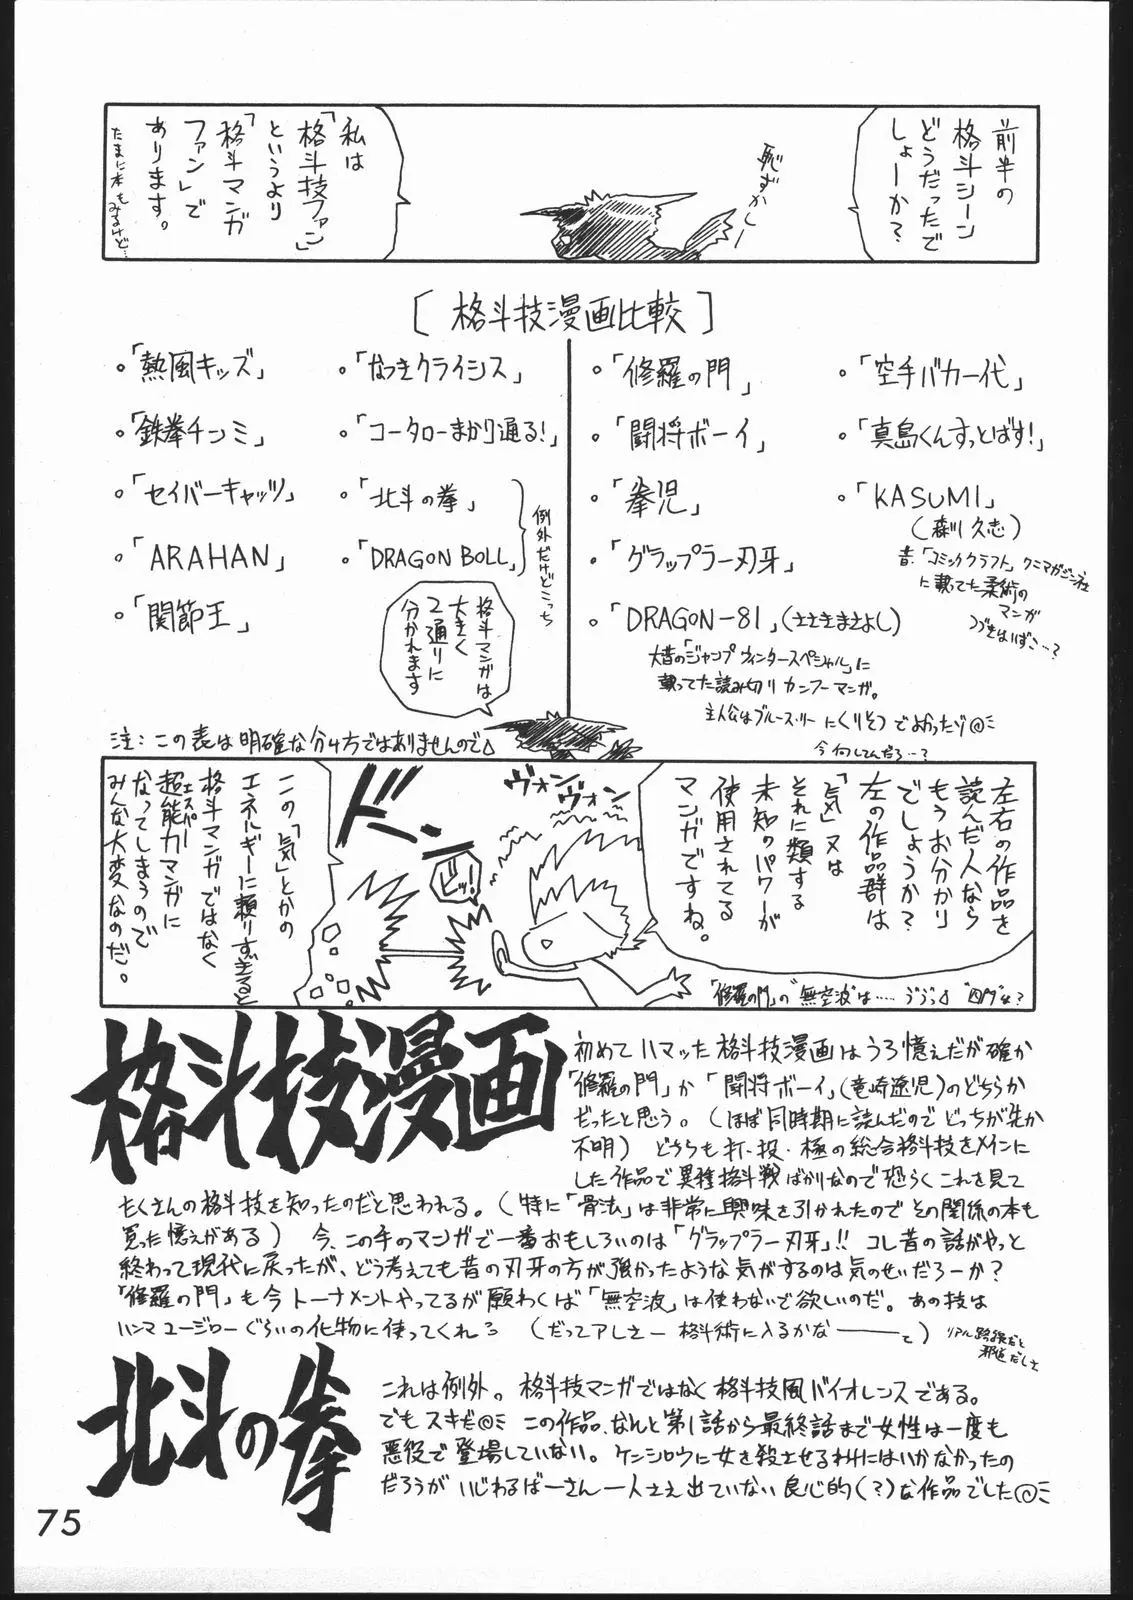 前半の
格斗シーン
どうだったで
しょーか?
恥ずかしー
私は
「格斗技ファン」
というより
「格斗マンガ
ファン」で
あります。
たまに本もみるけど…
[格斗技漫画比較]
。「熱風キッズ」
。「なつきクライシス」
。「鉄拳チンミ」
。「コータローまかり通る!」
。「セイバーキャッツ」
。「北斗の拳」
。「ARAHAN」
。「DRAGON BOLL」
例外だけどこっち
。「関節王」
。「修羅の門」
。「空手バカ一代」
。「闘将ボーイ」
。「真島くんすっとばす!」
。「拳児」
。「KASUMI」
(森川久志)
昔「コミッククラフト」クニマガジン社
に載ってた柔術の
マンガ
つづきはいずこ…?
。「グラップラー刃牙」
。「DRAGON-81」(ささきまさよし)
大昔の「ジャンプウィンタースペシャル」に
載ってた読み切りカンフーマンガ。
主人公はブルース・リーにくりそつでよかったゾ@ミ
今何してんだろ…?
格斗マンガは
大きく
2通りに
分かれます
注:この表は明確な分け方ではありませんので
左右の作品を
読んだ人なら
もうお分かり
でしょうか?
左の作品群は
「気」又は
それに類する
未知のパワーが
使用されてる
マンガですね。
ヴォン
ヴォン
ビッ!
ドン
「修羅の門」の“無空波”は……
この「気」とかの
エネルギーに頼りすぎると
格斗マンガではなく
超能力マンガに
エスパー
なってしまうので
みんな大変なのだ。
格斗技漫画
初めてハマッた格斗技漫画はうろ憶えだが確か
「修羅の門」か「闘将ボーイ」(竜崎遼児)のどちらか
だったと思う。(ほぼ同時期に読んだのでどっちが先か
不明)どちらも打・投・極の総合格斗技をメインに
した作品で異種格斗戦ばかりなので恐らくこれを見て
たくさんの格斗技を知ったのだと思われる。(特に「骨法」は非常に興味を引かれたのでその関係の本も
買った憶えがある)今、この手のマンガで一番おもしろいのは「グラップラー刃牙」!!コレ昔の話がやっと
終わって現代に戻ったが、どう考えても昔の刃牙の方が強かったような気がするのは気のせいだろーか?
「修羅の門」も今トーナメントやってるが願わくば「無空波」は使わないで欲しいのだ。あの技は
ハンマユージローぐらいの化物に使ってくれ
(だってアレさー格斗術に入るかな――と)
リアル路線だと
邪道だしさ
北斗の拳
これは例外。格斗技マンガではなく格斗技風バイオレンスである。
でもスキだ@ミ この作品、なんと第1話から最終話まで女性は一度も
悪役で登場していない。ケンシロウに女を殺させるわけにはいかなかったの
だろうがいじわるばーさん一人さえ出ていない良心的(?)な作品でした@ミ
75